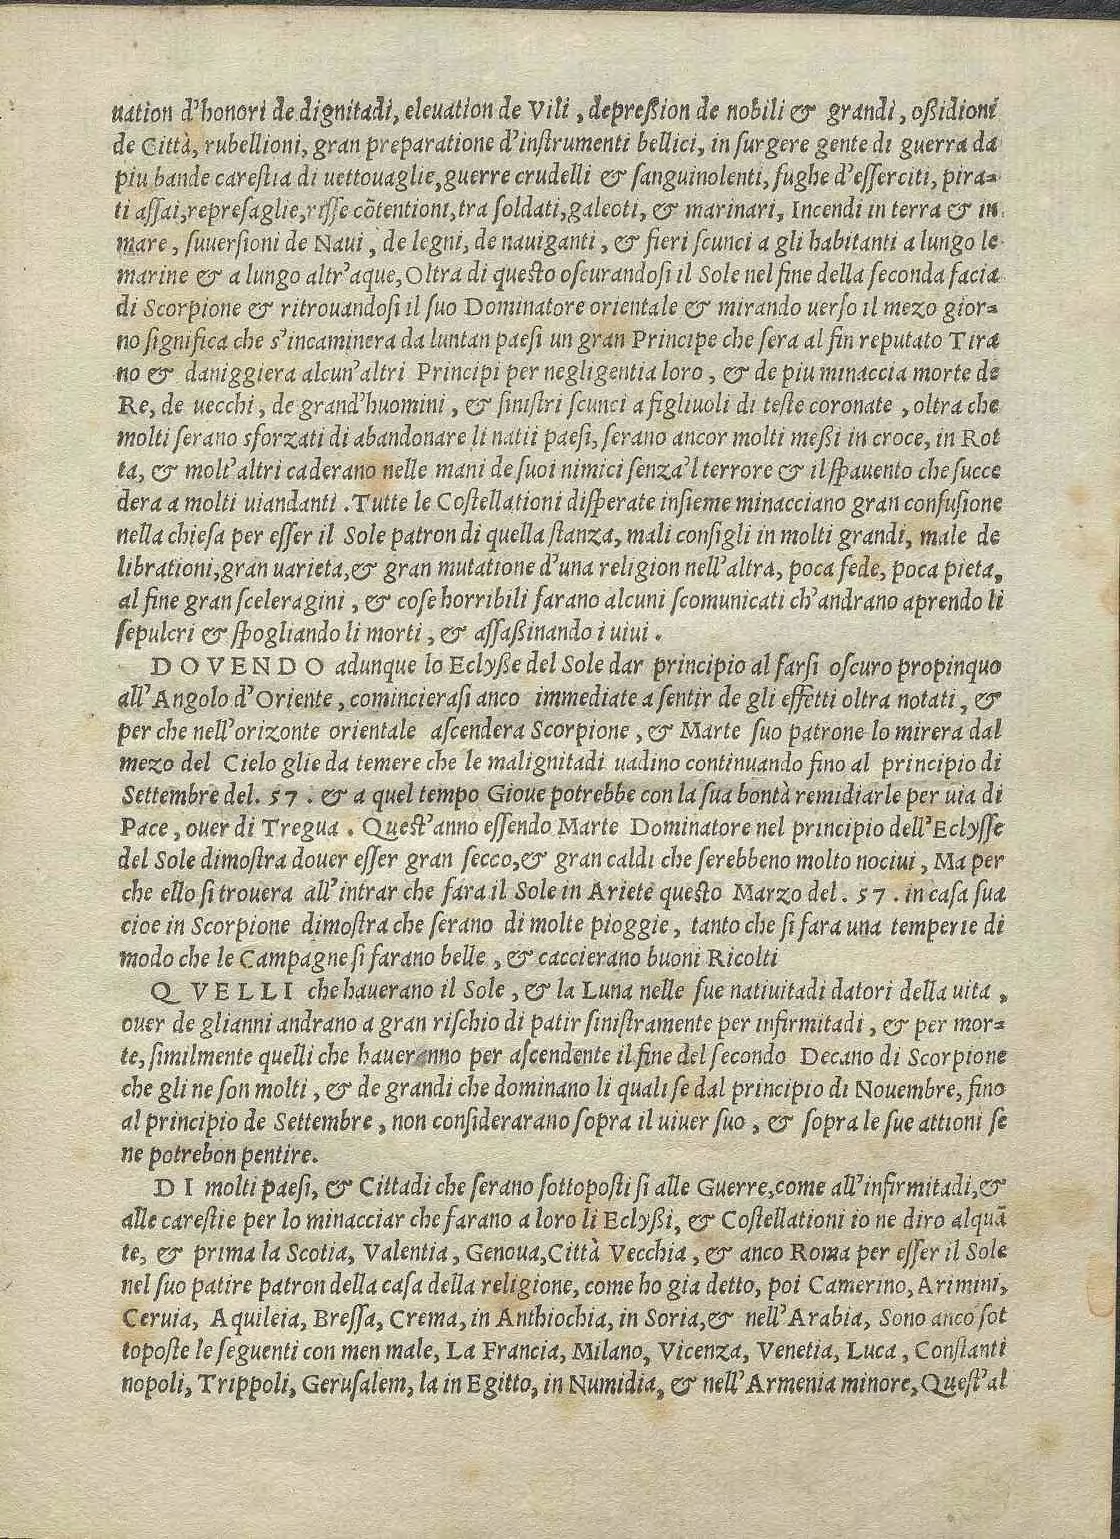 uation d'honori de dignitadi, eleuation de Vili, depreßion de nobili & grandi, oßidioni
de Città, rubellioni, gran preparatione d'inſtrumenti bellici, in ſurgere gente di guerra da
piu bande careſtia di uettouaglie, guerre crudelli & ſanguinolenti, fughe d'eſſerciti, pira-
ti aſſai, repreſaglie, riſſe cõtentioni, tra ſoldati, galeoti, & marinari, Incendi in terra & in
mare, ſuuerſioni de Naui, de legni, de nauiganti, & fieri ſcunci a gli habitanti a lungo le
marine & a lungo altr'aque, Oltra di queſto oſcurandoſi il Sole nel fine della ſeconda facia
di Scorpione & ritrouandoſi il ſuo Dominatore orientale & mirando uerſo il mezo gior-
no ſignifica che s'incaminera da luntan paeſi un gran Principe che ſera al fin reputato Tira
no & daniggiera alcun'altri Principi per negligentia loro, & de piu minaccia morte de
Re, de uecchi, de grand'huomini, & ſiniſtri ſcunci a figliuoli di teſte coronate, oltra che
molti ſerano sforzati di abandonare li natii paeſi, ſerano ancor molti meßi in croce, in Rot
ta, & molt'altri caderano nelle mani de ſuoi nimici ſenza'l terrore & il ſpauento che ſucce
dera a molti uiandanti. Tutte le Coſtellationi diſperate inſieme minacciano gran confuſione
nella chieſa per eſſer il Sole patron di quella ſtanza, mali conſigli in molti grandi, male de
librationi, gran uarieta, & gran mutatione d'una religion nell'altra, poca fede, poca pieta,
al fine gran ſceleragini, & coſe horribili farano alcuni ſcomunicati ch'andrano aprendo li
ſepulcri & ſpogliando li morti, & aſſaßinando i uiui.
DOVENDO adunque lo Eclyße del Sole dar principio al farſi oſcuro propinquo
all'Angolo d'Oriente, comincieraſi anco immediate a ſentir de gli effetti oltra notati, &
per che nell'orizonte orientale aſcendera Scorpione, & Marte ſuo patrone lo mirera dal
mezo del Cielo glie da temere che le malignitadi uadino continuando fino al principio di
Settembre del. 57. & a quel tempo Gioue potrebbe con la ſua bontà remidiarle per uia di
Pace, ouer di Tregua. Queſt'anno eſſendo Marte Dominatore nel principio dell'Eclyſſe
del Sole dimoſtra douer eſſer gran ſecco, & gran caldi che ſerebbeno molto nociui, Ma per
che ello ſi trouera all'intrar che fara il Sole in Ariete queſto Marzo del. 57. in caſa ſua
cioe in Scorpione dimoſtra che ſerano di molte pioggie, tanto che ſi fara una temperie di
modo che le Campagne ſi farano belle, & caccierano buoni Ricolti
QVELLI che hauerano il Sole, & la Luna nelle ſue natiuitadi datori della uita,
ouer de glianni andrano a gran riſchio di patir ſiniſtramente per infirmitadi, & per mor-
te, ſimilmente quelli che haueranno per aſcendente il fine del ſecondo Decano di Scorpione
che gli ne ſon molti, & de grandi che dominano li quali ſe dal principio di Nouembre, fino
al principio de Settembre, non conſiderarano ſopra il uiuer ſuo, & ſopra le ſue attioni ſe
ne potrebon pentire.
DI molti paeſi, & Cittadi che ſerano ſottopoſti ſi alle Guerre, come all'infirmitadi, &
alle careſtie per lo minacciar che farano a loro li Eclyßi, & Coſtellationi io ne diro alquã
te, & prima la Scotia, Valentia, Genoua, Città Vecchia, & anco Roma per eſſer il Sole
nel ſuo patire patron della caſa della religione, come ho gia detto, poi Camerino, Arimini,
Ceruia, Aquileia, Breſſa, Crema, in Anthiochia, in Soria, & nell'Arabia, Sono anco ſot
topoſte le ſeguenti con men male, La Francia, Milano, Vicenza, Venetia, Luca, Conſtanti
nopoli, Trippoli, Geruſalem, la in Egitto, in Numidia, & nell'Armenia minore, Queſt'al